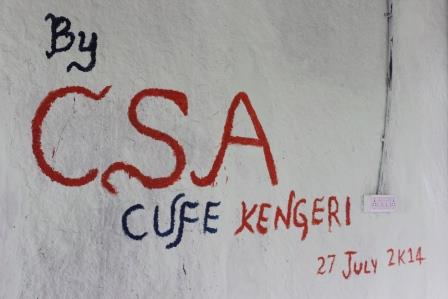 By
CSA
CUFE KENGERI
27 JULY 2K14